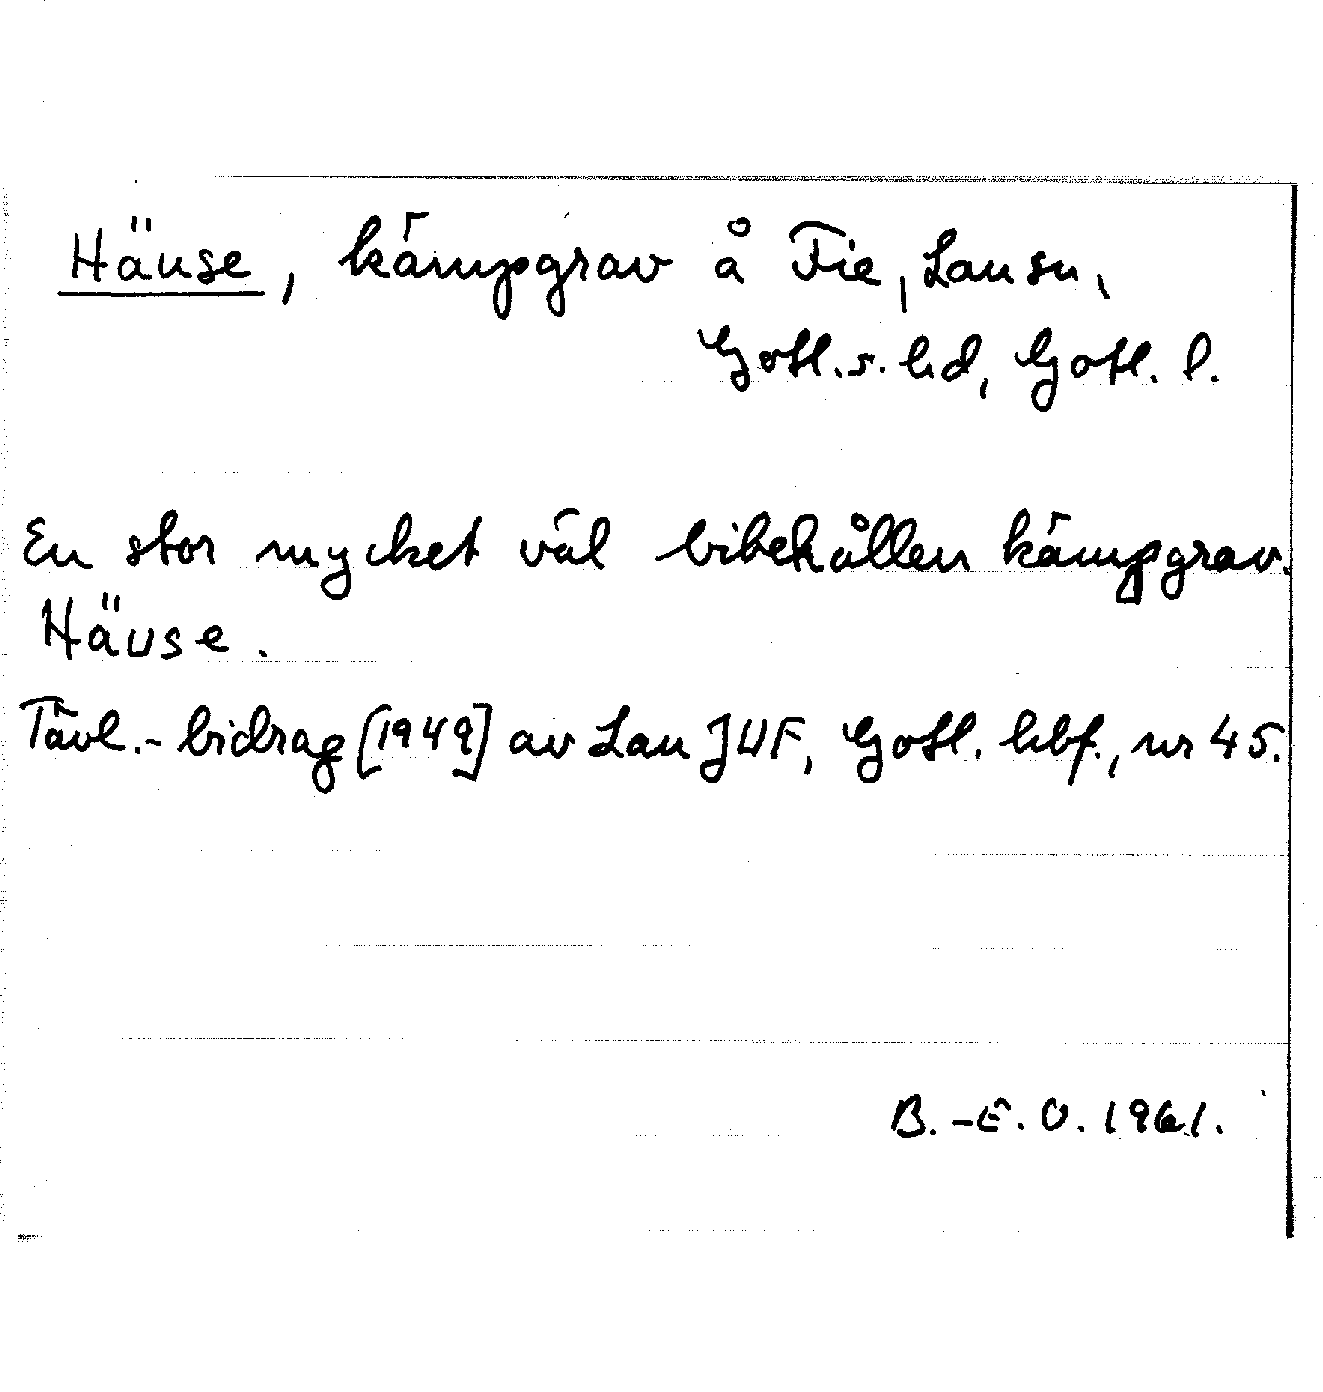 Häuse, kämpgrav å Fie, Lau sn,
Gotl. s. hd, Gotl. l.
En stor mycket väl bibehållen kämpgrav.
Häuse.
Tävl.-bidrag [1949] av Lau JUF, Gotl. hbf., nr 45.
B.-E. O. 1961.